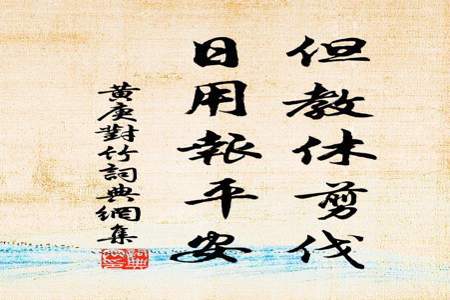 但教休剪伐
日用報平安
黃庚對竹詞典網集